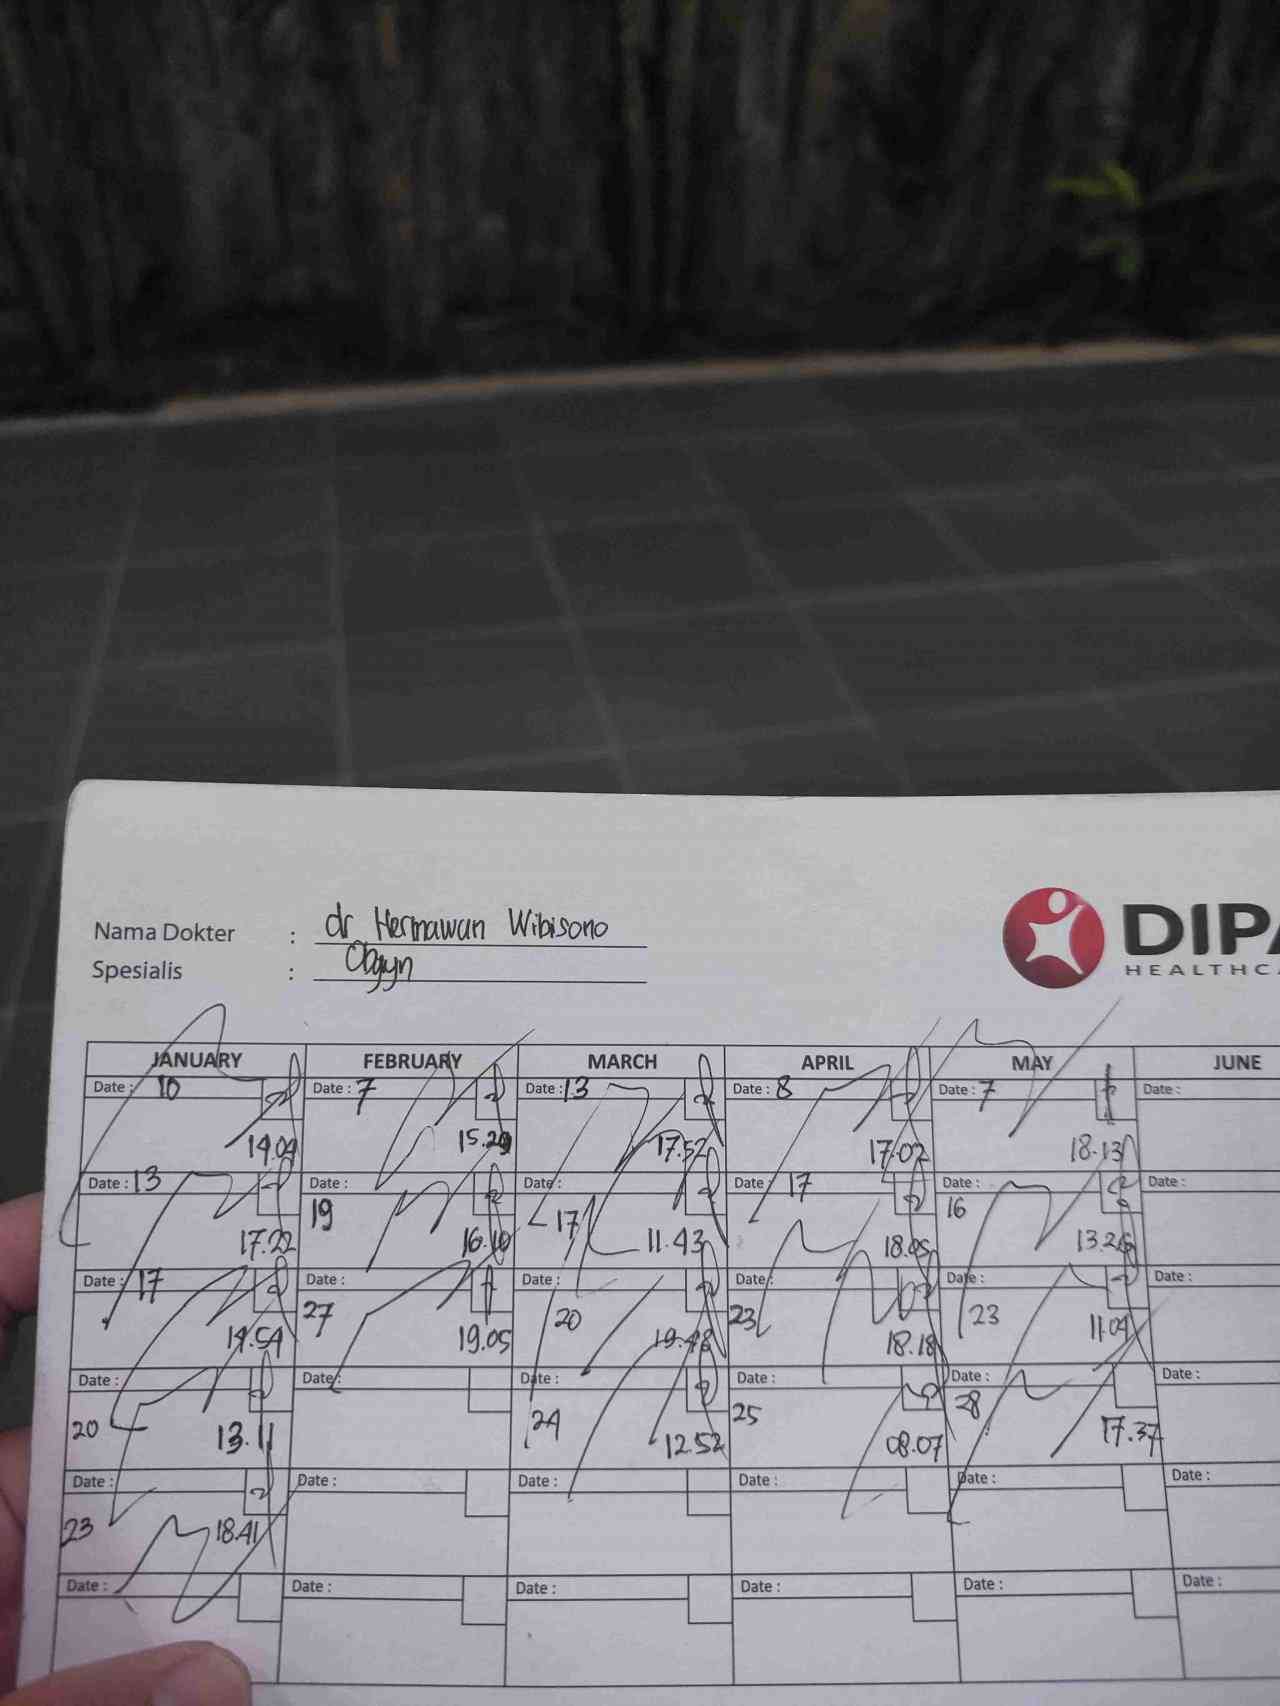 Nama Dokter : dr Hermawan Wibisono
Spesialis : Obgyn
DIPA
HEALTHCA
JANUARY FEBRUARY MARCH APRIL MAY JUNE
Date : 10 Date : 7 Date : 13 Date : 8 Date : 7 Date :
14.09 15.29 17.52 17.02 18.13
Date : 13 Date : Date : Date : 17 Date : Date :
19 17 16
17.22 16.10 11.43 18.05 13.26
Date : 17 Date : Date : Date : Date : Date :
27 20 23 23
14.54 19.05 19.48 18.18 11.04
Date : Date : Date : Date : Date : Date :
20 24 25 28
13.11 12.52 08.07 17.37
Date : Date : Date : Date : Date : Date :
23
18.41
Date : Date : Date : Date : Date : Date :